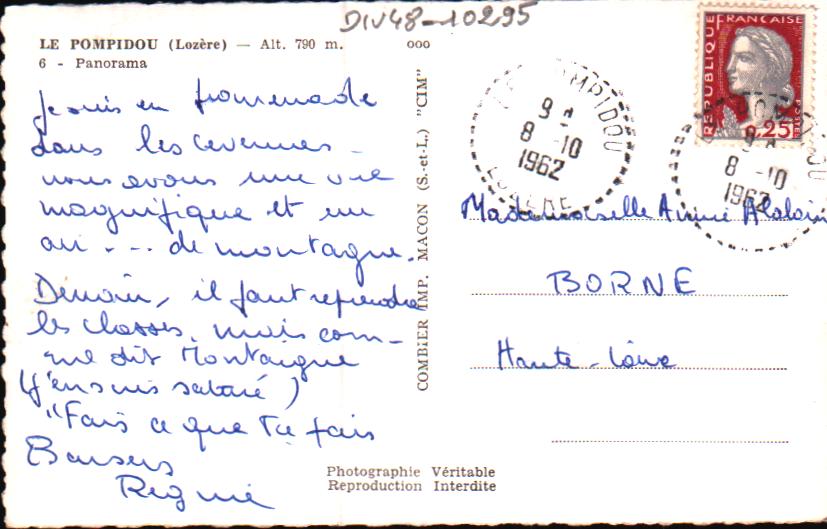 DIV48-10295
LE POMPIDOU (Lozère) — Alt. 790 m.
6 - Panorama
ooo
Je suis en promenade
dans les cevennes -
nous avons une vue
magnifique et un
air --- de montagne.
Demain, il faut reprendre
les classes, mais com-
me dit Montaigne
(j'en suis saturé)
"Fais ce que tu fais
Baisers
Régine
COMBIER IMP. MACON (S.-et-L.) "CIM"
Photographie Véritable
Reproduction Interdite
REPUBLIQUE FRANCAISE
0,25
POSTES
LE POMPIDOU
9 H
8 -10
1962
LOZERE
9 H
8 -10
1962
Mademoiselle Annie
BORNE
Haute-Loire